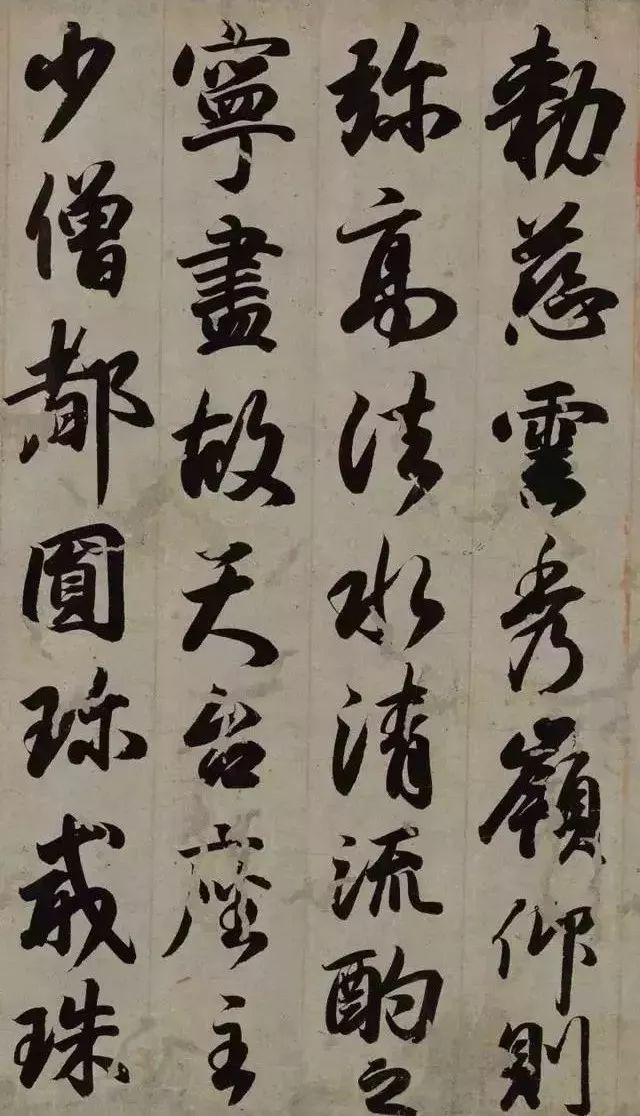 勅慈雲秀嶺仰則
弥高法水清流酌之
寧盡故天台座主
少僧都圓珎戒珠